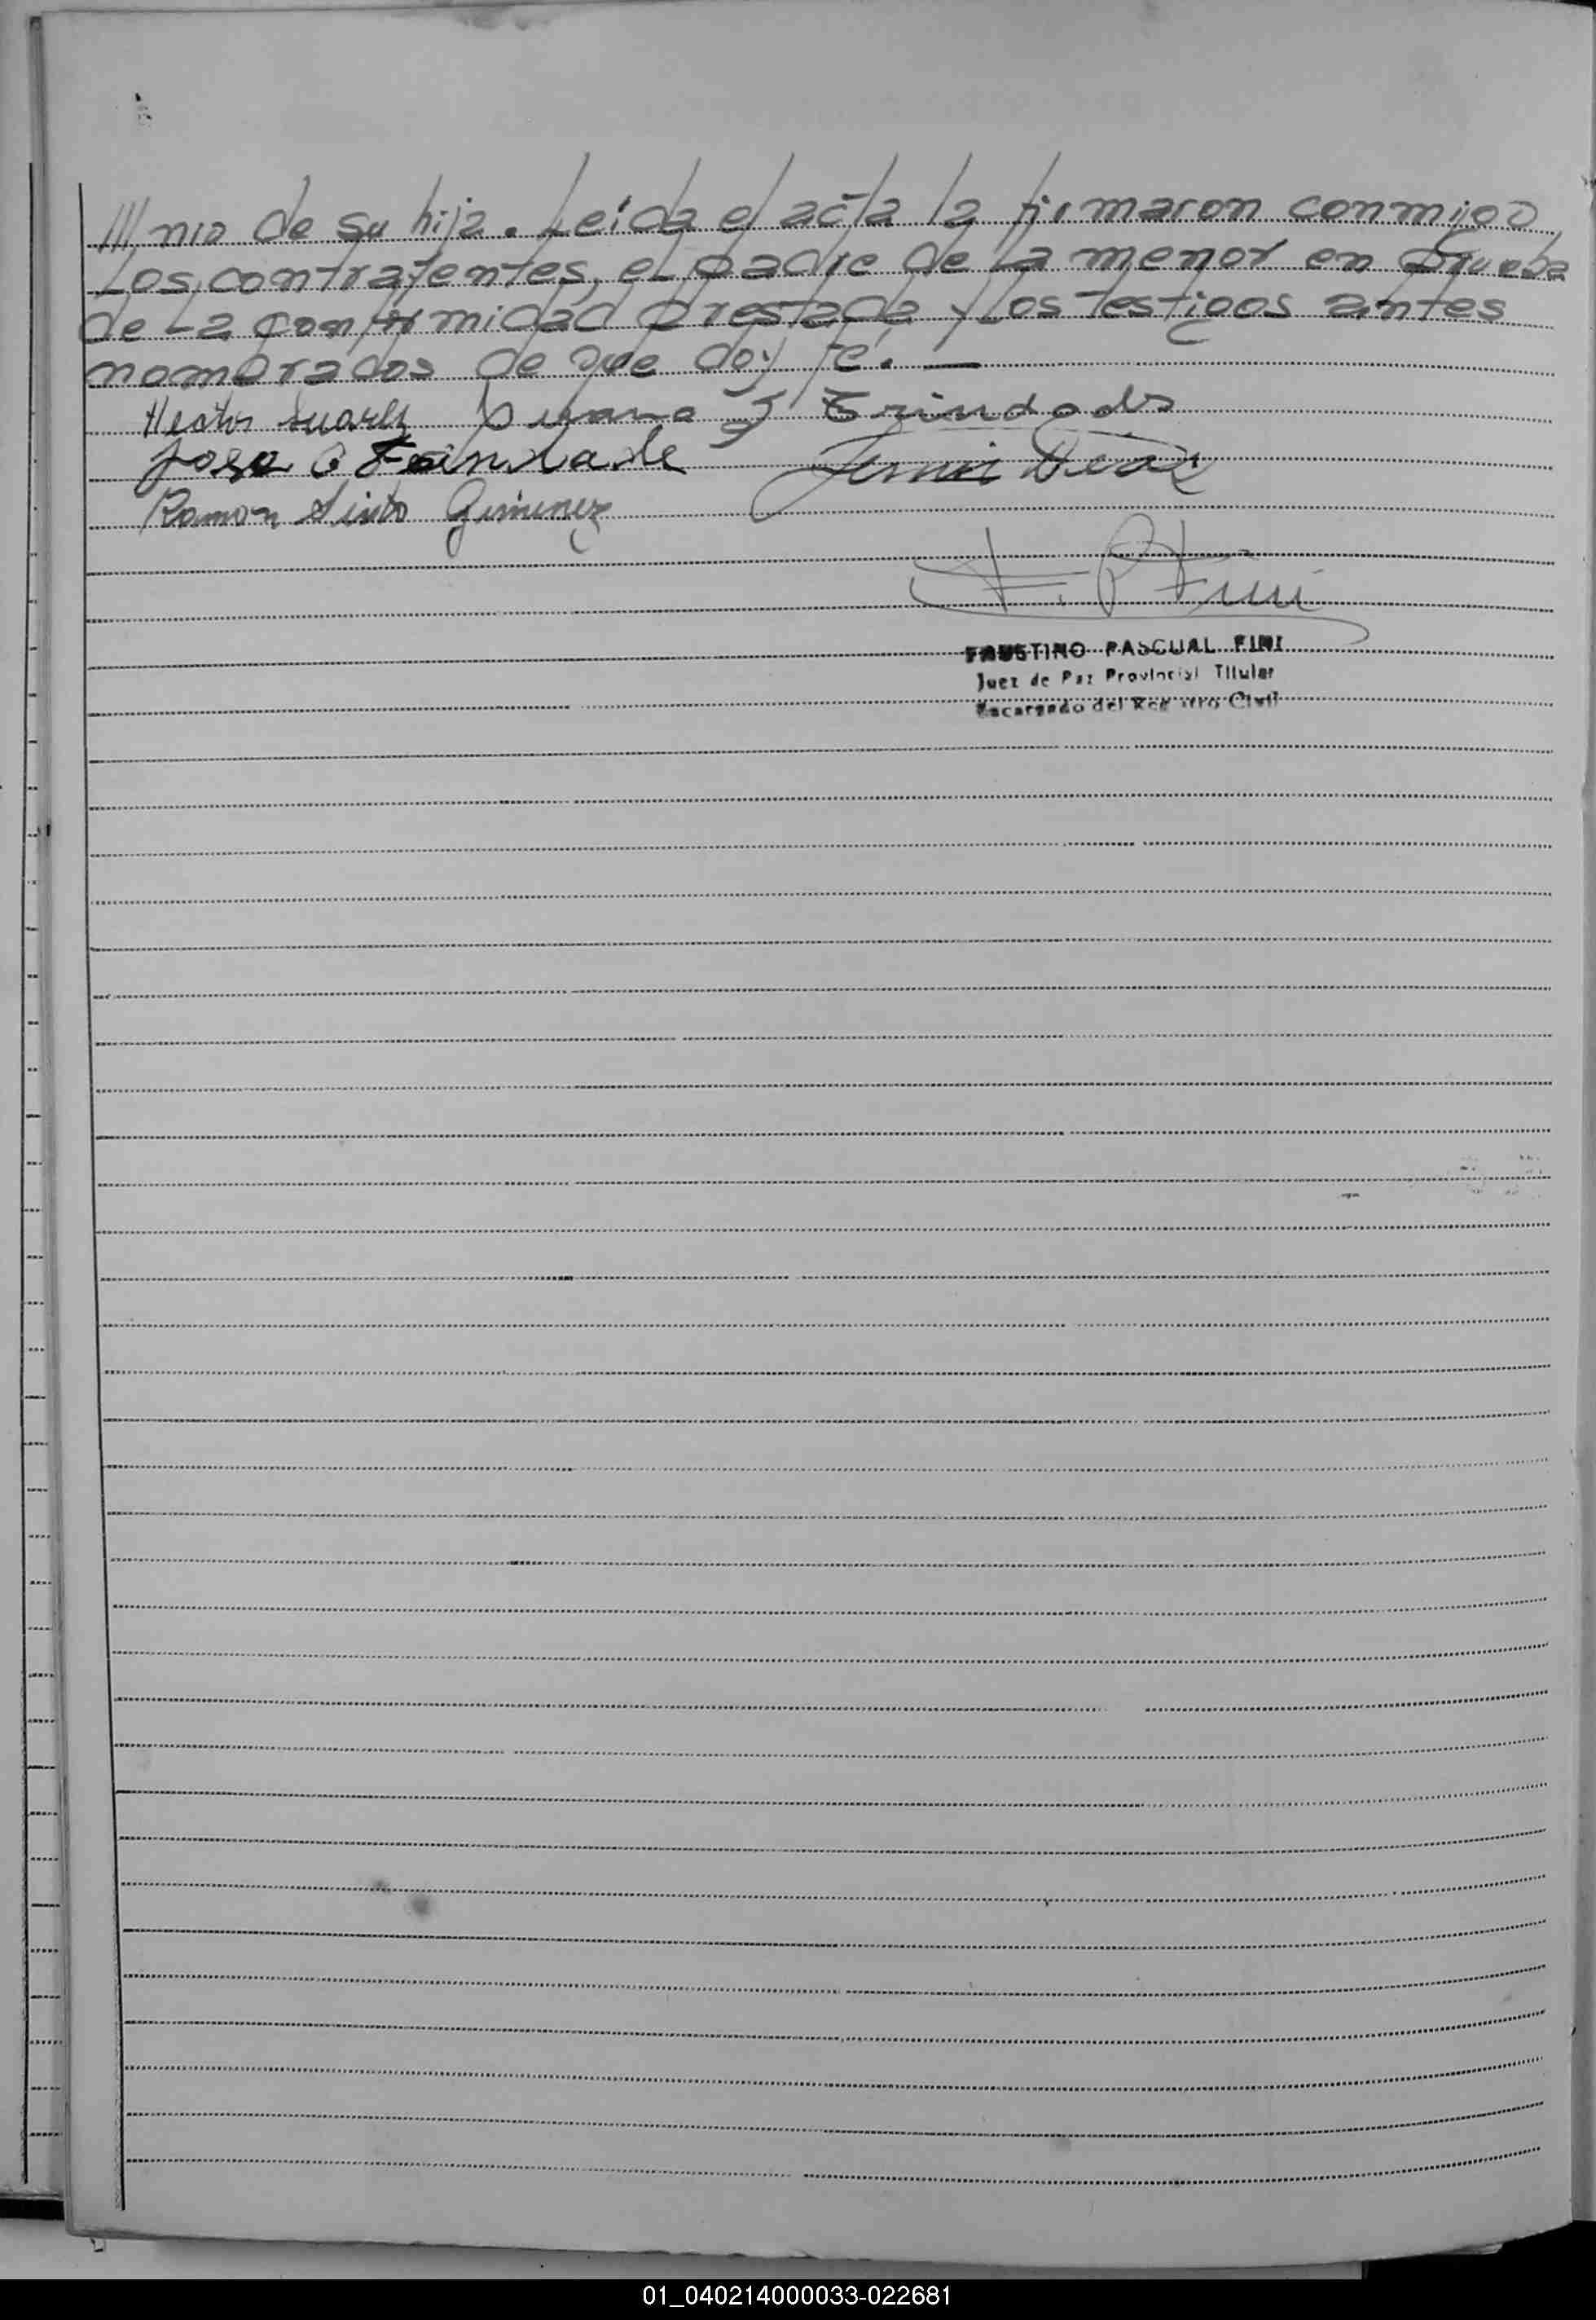 /// nio de su hija. Leída el acta la firmaron conmigo
Los contrayentes, el padre de La menor en prueba
de La conformidad prestada y Los testigos antes
nombrados de que doy fé. —
Hector Suarez J Trindade
Jose C Trindade Fermin Diaz
Ramon Sixto Gimenez
F. P Fini
FAUSTINO PASCUAL FINI
Juez de Paz Provincial Titular
Encargado del Registro Civil
01_040214000033-022681